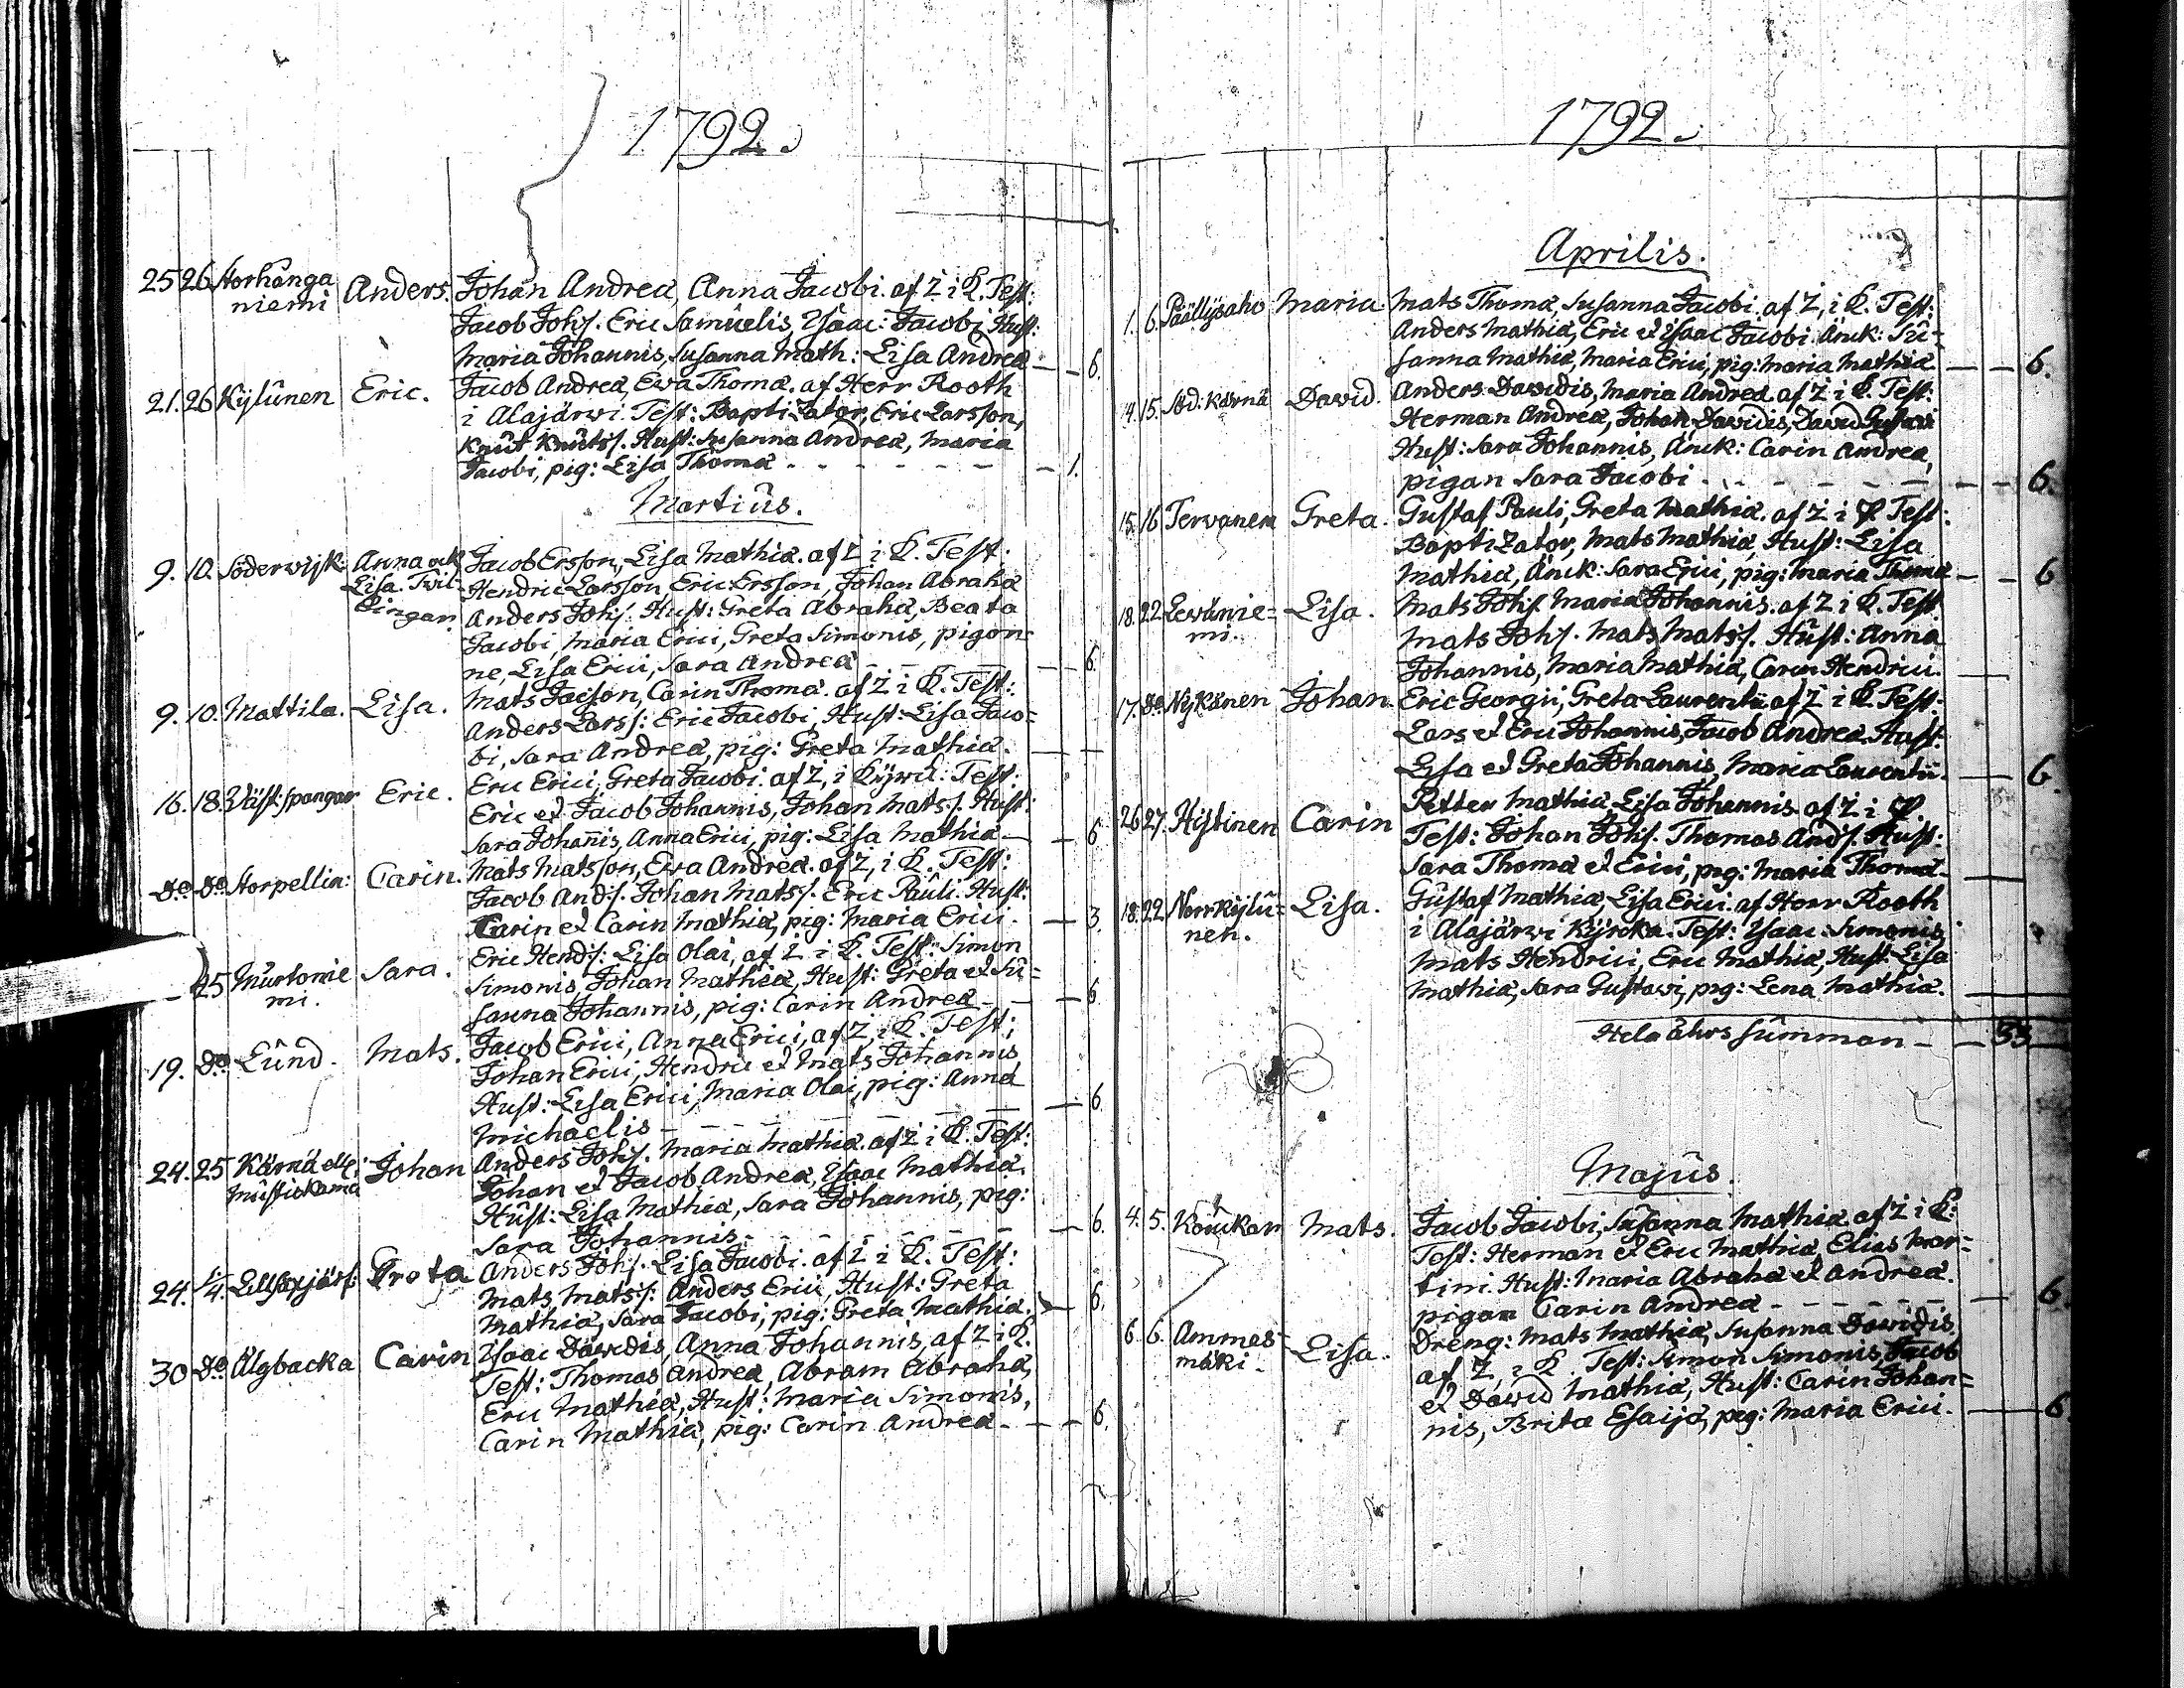 1792.
25 26 Storhånga Anders. Johan Andreä, Anna Jacobi. af Z i K. Test:
niemi
Jacob Johs. Eric Samuelis, Isaac: Jacobi, Hust:
Maria Johannis, Susanna Math: Lisa Andreä — 6.
21. 26 Kylûnen Eric. Jacob Andreä, Eva Thomæ. af Herr Rooth
i Alajärwi. Test: Baptizator, Eric Larsson,
Knût Knûtss. Hust: Susanna Andreä, Maria
Jacobi, pig: Lisa Thomä - - - - - - 1.
Martiûs.
9. 10. Söderwijk. Anna och Jacob Ersson, Lisa Mathiä. af Z i K. Test.
Lisa. Twil- Hendric Larsson, Eric Ersson, Johan Abrahä
lingar Anders Johs. Hust: Greta Abrahä, Beata
Jacobi, Maria Erici, Greta Simonis, pigor-
ne, Lisa Erici, Sara Andreä — — 6.
9. 10. Mattila. Lisa. Mats Jacsson, Carin Thomä. af Z i K. Test:
Anders Larss: Eric Jacobi, Hust: Lisa Jaco=
bi, Sara Andreä, pig: Greta Mathiä. — —
16. 18. Wäst: spangar Eric. Eric Erici, Greta Jacobi. af Z, i Kyrck: Test:
Eric et Jacob Johannis, Johan Matss. Hust:
Sara Johan̄is, Anna Erici, pig: Lisa Mathiä — 6
do do Storpellin: Carin. Mats Matsson, Eva Andreä. af Z, i K. Test:
Jacob Ands. Johan Matss. Eric Paûli. Hust:
Carin et Carin Mathiä, pig: Maria Erici. — 3.
25 Mûrtonie Sara. Eric Hends: Lisa Olai, af Z i K. Test: Simon
mi. Simonis, Johan Mathiä, Hust: Greta et Sû=
sanna Johannis, pig: Carin Andreä — — 6.
19. do Lûnd. Mats. Jacob Erici, Anna Erici, af Z, i K. Test;
Johan Erici, Hendric et Mats Johannis
Hust: Lisa Erici, Maria Olai, pig: Anna
Michaelis - - - - — 6.
24. 25 Kärnä ell: Johan Anders Johs. Maria Mathiä. af Z i K. Test:
Johan et Jacob Andreä, Isaac Mathiä.
Hûst: Lisa Mathiä, Sara Johannis, pig:
Sara Johannis. - - - - — 6.
24. 1/4. Greta Anders Johs. Lisa Jacobi. af Z i K. Test:
Mats Matss: Anders Erici, Hust: Greta
Mathiä, Sara Jacobi, pig: Greta Mathiä. — 6.
30 do Älgbacka Carin Isaac Dawidis, Anna Johannis, af Z i K.
Test: Thomas Andreä, Abram Abrahä,
Eric Mathiä, Hust: Maria Simonis,
Carin Mathiä, pig: Carin Andreä - — 6.
1792.
Aprilis.
1. 6. Päällysaho Maria. Mats Thomä, Susanna Jacobi. af Z, i K. Test:
Anders Mathiä, Eric et Isaac Jacobi. Änck: Sû-
sanna Mathiä, Maria Erici, pig: Maria Mathiä. — — 6.
14. 15. Söd: Kärnä David. Anders Dawidis, Maria Andreä. af Z i K. Test:
Herman Andreä, Johan Dawidis, David Gustavi
Hust: Sara Johannis, Änck: Carin Andreä,
pigan Sara Jacobi - - - - — 6.
15. 16 Tervanen Greta. Gustaf Pauli, Greta Mathiä. af Z i P Test:
Baptizator, Mats Mathiä, Hust: Lisa
Mathiä, Änck: Sara Erici, pig: Maria Thomä — — 6
18. 22 Lewänie= Lisa. Mats Johs. Maria Johannis. af Z i K. Test.
mi. Mats Johs. Mats Matss. Hûst: Anna
Johannis, Maria Mathiä, Carin Hendrici.
17. do Nykänen Johan. Eric Georgii, Greta Laurentii af Z i K. Test:
Lars et Eric Johannis, Jacob Andreä. Hust:
Lisa et Greta Johannis, Maria Laurentii. — 6.
26 27. Hystinen Carin Petter Mathiä, Lisa Johannis. af Z i P
Test: Johan Johs. Thomas Ands. Hust:
Sara Thomä et Erici, pig: Maria Thomä —
18. 22 Norrkylû= Lisa. Gûstaf Mathiä, Lisa Erici. af Herr Rooth
nen. i Alajärwi Kyrcka. Test: Isaac Simonis,
Mats Hendrici, Eric Mathiä, Hust: Lisa
Mathiä, Sara Gustavi, pig: Lena Mathiä.
Hela åhrs sûmman — — 33 —
Majûs.
4. 5. Koûkan Mats. Jacob Jacobi, Susanna Mathiä af Z i K:
Test: Herman et Eric Mathiä, Elias Mar=
tini. Hust: Maria Abrahä et Andreä.
pigan Carin Andreä - - - - — 6.
6. 6. Ammes- Lisa. Dreng: Mats Mathiä, Susanna Dawidis.
mäki - af Z, i K. Test: Simon Simonis, Jacob
et Dawid Mathiä, Hust: Carin Johan=
nis, Brita Esaijä, pig: Maria Erici. — 6.